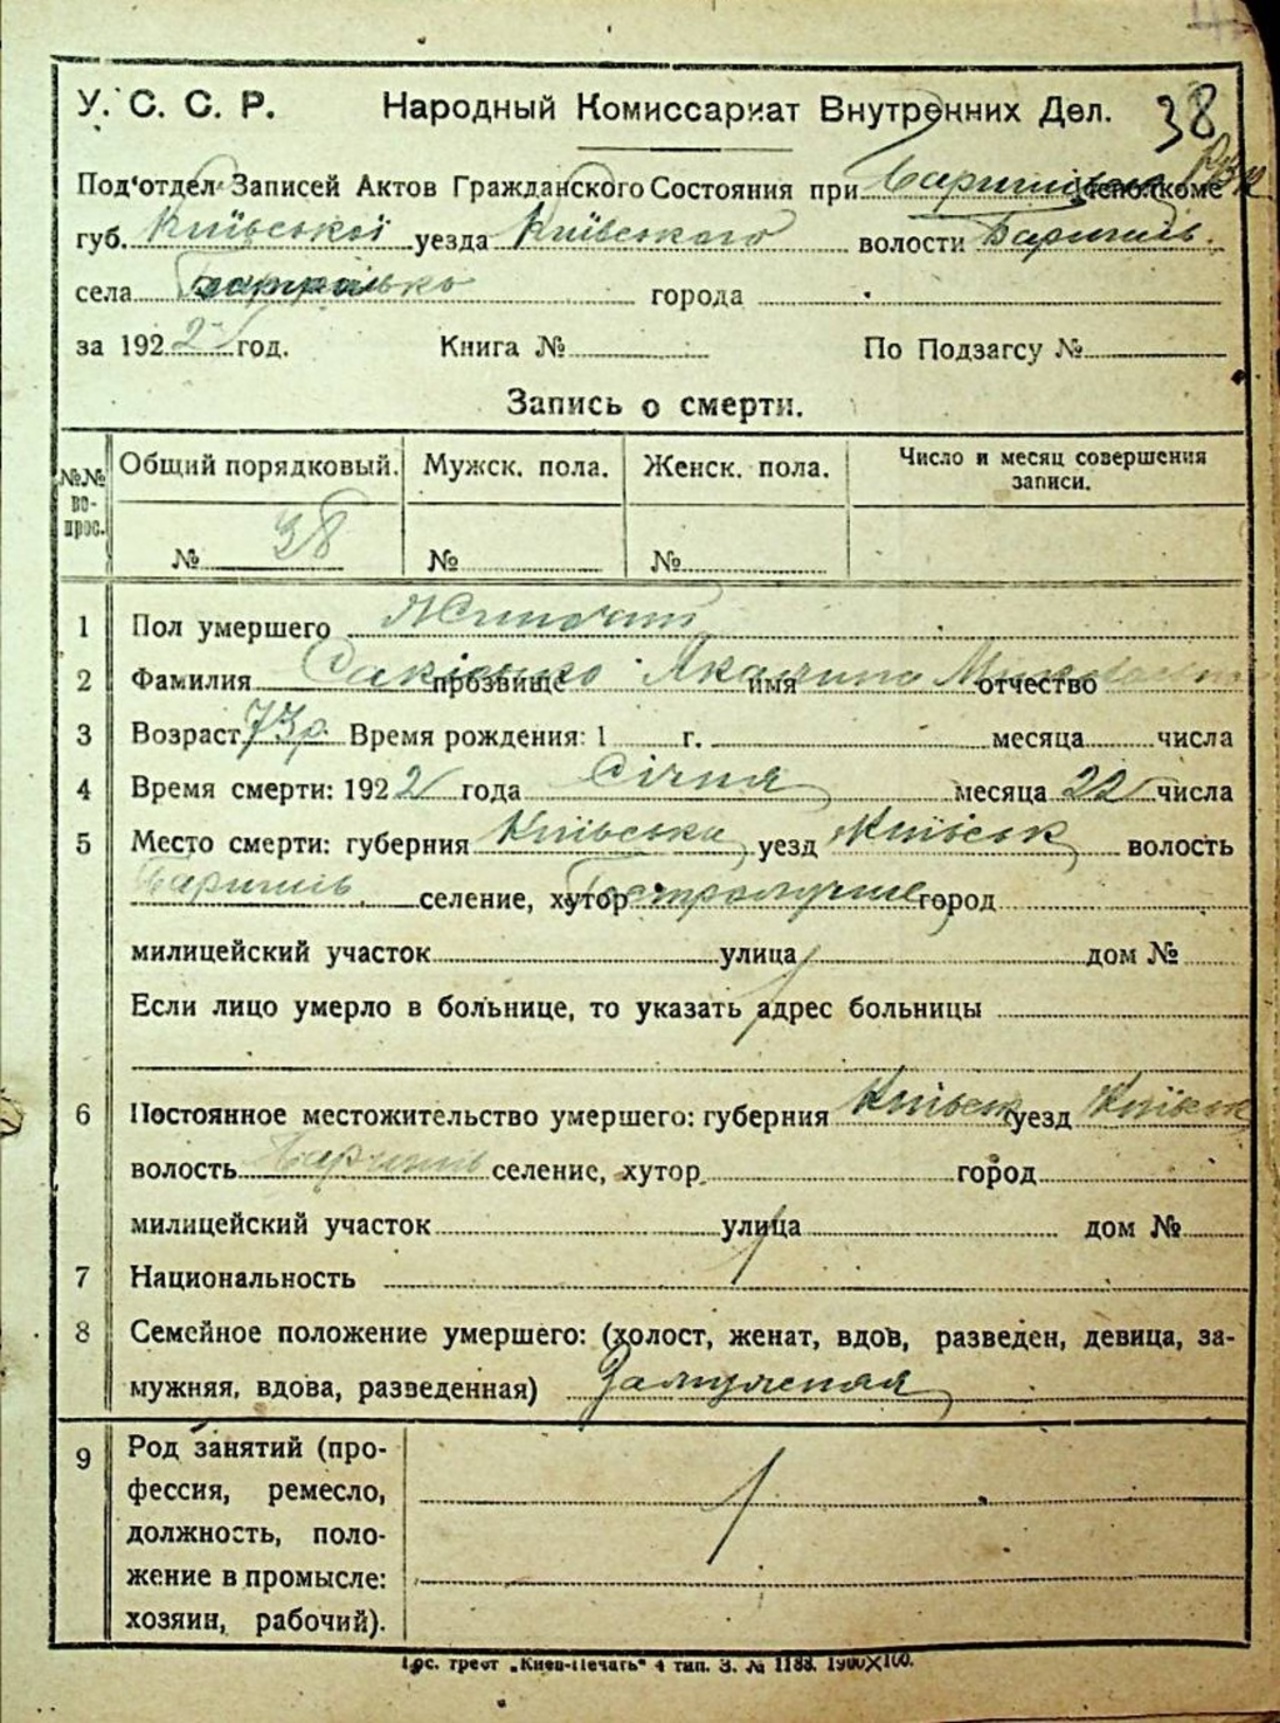 38
У. С. С. Р. Народный Комиссариат Внутренних Дел.
Под'отдел Записей Актов Гражданского Состояния при Исполкоме
губ. Київської уезда Київського волости Баришіль
села города
за 1922 год. Книга № По Подзагсу №
Запись о смерти.
№№ во-прос. Общий порядковый. Мужск. пола. Женск. пола. Число и месяц совершения записи.
№ 38 № №
1 Пол умершего
2 Фамилия прозвище имя отчество
3 Возраст 73 р. Время рождения: 1 г. месяца числа
4 Время смерти: 1922 года Січня месяца 22 числа
5 Место смерти: губерния Київська уезд Київськ волость
селение, хутор город
милицейский участок улица дом №
Если лицо умерло в больнице, то указать адрес больницы
6 Постоянное местожительство умершего: губерния Київськ уезд Київськ
волость селение, хутор город
милицейский участок улица дом №
7 Национальность
8 Семейное положение умершего: (холост, женат, вдов, разведен, девица, за-
мужняя, вдова, разведенная) Замужняя
9 Род занятий (про-
фессия, ремесло,
должность, поло-
жение в промысле:
хозяин, рабочий).
Гос. трест „Киев-Печать“ 4 тип. З. № 1188.